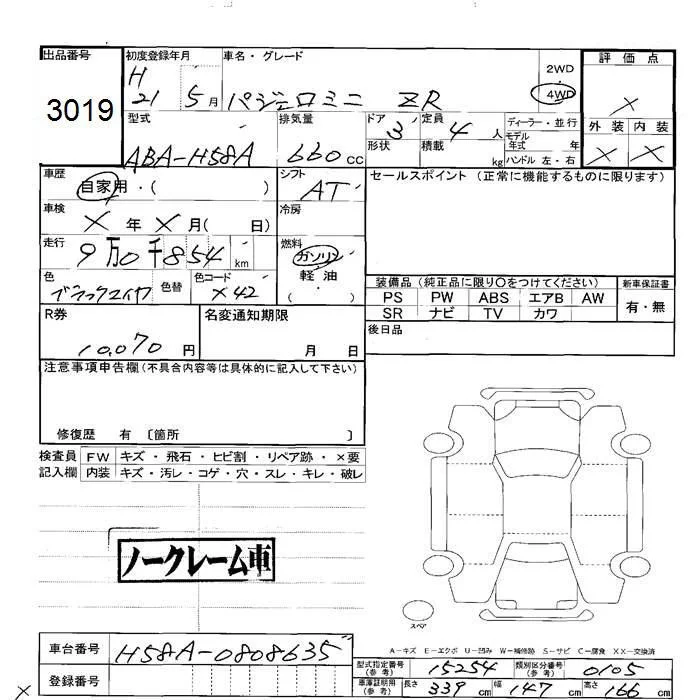 出品番号 初度登録年月 車名・グレード 評価点
3019 H 21 5月 パジェロミニ ZR 2WD 4WD X
型式 排気量 ドア 定員 ディーラー・並行 外装 内装
ABA-H58A 660cc 3 4人 モデル年式 年 X X
形状 積載 kg ハンドル 左・右
車歴 シフト セールスポイント (正常に機能するものに限ります)
自家用・( ) AT
車検 X年X月( 日) 冷房
走行 9万0千854km 燃料 ガソリン
軽油
( )
色 色替 色コード 装備品 (純正品に限り○をつけてください) 新車保証書
X42 PS PW ABS エアB AW 有・無
SR ナビ TV カワ
R券 名変通知期限 後日品
10,070円 月 日
注意事項申告欄(不具合内容等は具体的に記入して下さい)
修復歴 有 〔箇所 〕
検査員 FW キズ・飛石・ヒビ割・リペア跡・×要
記入欄 内装 キズ・汚レ・コゲ・穴・スレ・キレ・破レ
ノークレーム車
スペア
A−キズ E−エクボ U−凹み W−補修跡 S−サビ C−腐食 XX−交換済
車台番号 H58A-0808635
登録番号
型式指定番号(参考) 15254 類別区分番号(参考) 0105
車庫証明用(参考) 長さ 339cm 幅 147cm 高さ 166cm
X